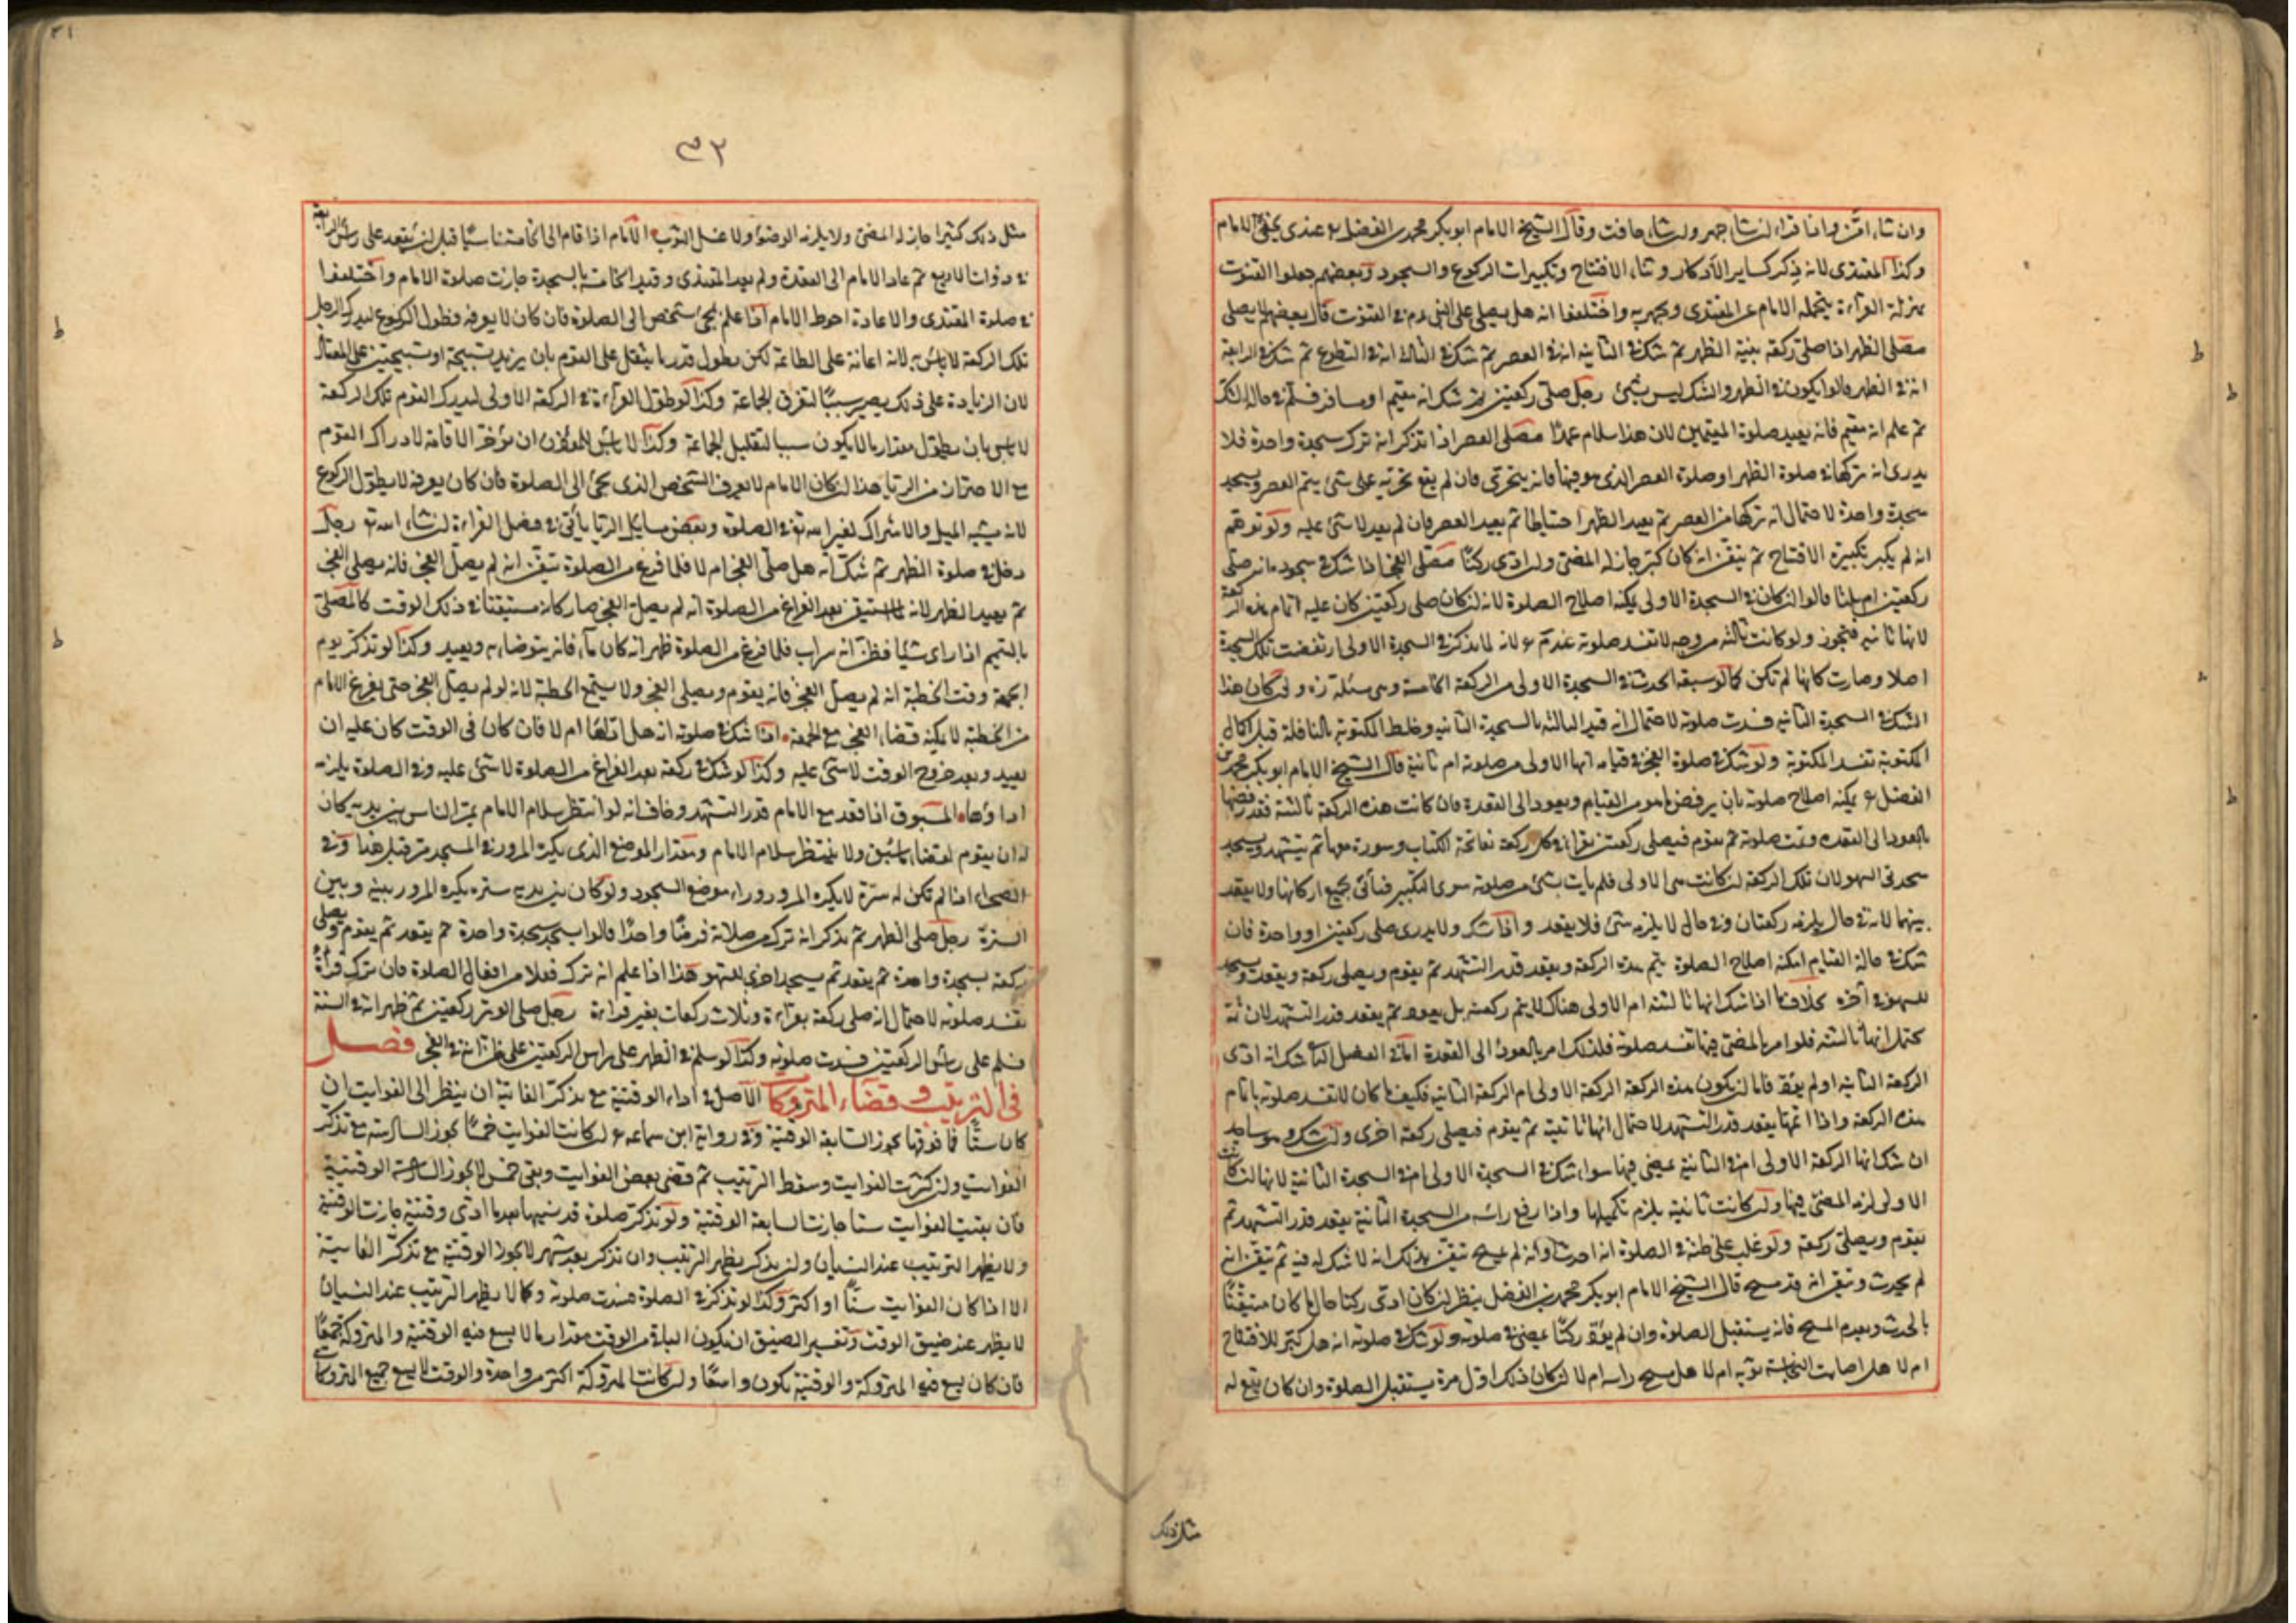 وان شاء امّن واذا قراء ان شاء جهر وان شاء خافت وقال الشيخ الامام ابو بكر محمد بن الفضل رح عندى يخفى الامام
وكذا المقتدى لانه ذكر كساير الاذكار وثناء الافتتاح وتكبيرات الركوع والسجود وبعضهم جعلوا القنوت
بمنزلة القراءة يتحمله الامام عن المقتدى ويجهر به واختلفوا انه هل يصلى على النبى ع م فى القنوت قال بعضهم لا يصلى
مصلى الظهر اذا صلى ركعة بنية الظهر ثم شك فى الثانية انه فى العصر ثم شك فى الثالثة انه فى التطوع ثم شك فى الرابعة
انه فى الظهر قالوا يكون فى الظهر والشك ليس بشئ رجل صلى ركعتين ثم شك انه مقيم او مسافر فسلم فى حالة الشك
ثم علم انه مقيم فانه يعيد صلوة المقيمين لان هذا سلام عمدًا مصلى العصر اذا تذكر انه ترك سجدة واحدة فلا
يدرى انه تركها فى صلوة الظهر او صلوة العصر الذى هو فيها فانه يتحرى فان لم يقع تحريه على شئ يتم العصر ويسجد
سجدة واحدة لاحتمال انه تركها من العصر ثم يعيد الظهر احتياطا ثم يعيد العصر فان لم يعد لا شئ عليه ولو توهم
انه لم يكبر تكبيرة الافتتاح ثم تيقن انه كان كبر جاز له المضى وان ادى ركنًا مصلى الفجر اذا شك فى سجوده انه صلى
ركعتين ام ثلثا قالوا ان كان فى السجدة الاولى يمكنه اصلاح الصلوة لانه ان كان صلى ركعتين كان عليه اتمام هذه الركعة
لانها ثانية فتجوز ولو كانت ثالثة من وجه لا تفسد صلوته عند م رح لانه لما تذكر فى السجدة الاولى ارتفضت تلك السجدة
اصلا وصارت كانها لم تكن كما لو سبقه الحدث فى السجدة الاولى من الركعة الخامسة وهى مسئلة زه وان كان هذا
الشك فى السجدة الثانية فسدت صلوته لاحتمال انه قيد الثالثة بالسجدة الثانية وخلط المكتوبة بالنافلة قبل اكمال
المكتوبة تفسد المكتوبة ولو شك فى صلوة الفجر فى قيامه انها الاولى من صلوته ام ثانية قال الشيخ الامام ابو بكر محمد بن
الفضل رح يمكنه اصلاح صلوته بان يرفض ما هو من القيام ويعود الى القعدة فان كانت هذه الركعة ثالثة فقد رفضها
بالعود الى القعدة وتمت صلوته ثم يقوم فيصلى ركعتين يقرا فى كل ركعة بفاتحة الكتاب وسورة معها ثم يتشهد ويسجد
سجدتى السهو لان تلك الركعة ان كانت هى الاولى فلم يات بشئ من صلوته سوى التكبير فيأتى بجميع اركانها ولا يقعد
بينهما لانه فى حال يلزمه ركعتان وفى حال لا يلزمه شئ فلا يقعد واذا شك ولا يدرى صلى ركعتين او واحدة فان
شك فى حالة القيام امكنه اصلاح الصلوة يتم هذه الركعة ويقعد قدر التشهد ثم يقوم ويصلى ركعة ويقعد ويسجد
للسهو فى آخره بخلاف ما اذا شك انها ثالثة ام الاولى هناك لا يتم ركعة بل يعود ثم يقعد قدر التشهد لان ثمة
يحتمل انها ثالثة فلو امر بالمضى فيها تفسد صلوته فلذلك امر بالعود الى القعدة اما فى الفصل الثانى شك انه ادى
الركعة الثانية او لم يؤد فاما ان يكون هذه الركعة الركعة الاولى ام الركعة الثانية فكيف ما كان لا تفسد صلوته باتمام
هذه الركعة واذا اتمها يقعد قدر التشهد لاحتمال انها ثانية ثم يقوم فيصلى ركعة اخرى وان شك وهو ساجد
ان شك انها الركعة الاولى ام فى الثانية يمضى فيها سواء شك فى السجدة الاولى ام فى السجدة الثانية لانها ان كانت
الاولى لزمه المضى فيها وان كانت ثانية يلزم تكميلها واذا رفع راسه من السجدة الثانية يقعد قدر التشهد ثم
يقوم ويصلى ركعة ولو غلب على ظنه فى الصلوة انه احدث او انه لم يمسح تيقن بذلك انه لا شك له فيه ثم تيقن انه
لم يحدث وتيقن انه قد مسح قال الشيخ الامام ابو بكر محمد بن الفضل ينظر ان كان ادى ركنا حال ما كان متيقنًا
بالحدث وبعدم المسح فانه يستقبل الصلوة وان لم يؤد ركنًا يمضى فى صلوته ولو شك فى صلوته انه هل كبر للافتتاح
ام لا هل اصابت النجاسة ثوبه ام لا هل مسح راسه ام لا ان كان ذلك اول مرة يستقبل الصلوة وان كان يقع له
مثل ذلك
٣٢
مثل ذلك كثيرا جاز له المضى ولا يلزمه الوضوء ولا غسل الثوب الامام اذا قام الى الخامسة ناسيًا قبل ان يقعد على رأس الرابعة
فى ذوات الاربع ثم عاد الامام الى القعدة ولم يعد المقتدى وقيد الخامسة بالسجدة جازت صلوة الامام واختلفوا
فى صلوة المقتدى والاعادة احوط الامام اذا علم بمجئ شخص الى الصلوة فان كان لا يعرفه فطول الركوع ليدرك الرجل
تلك الركعة لا باس به لانه اعانة على الطاعة لكن يطول قدر ما لا يثقل على القوم بان يزيد تسبيحة او تسبيحتين على المعتاد
لان الزيادة على ذلك يصير سببًا لتفرق الجماعة وكذا لو طول القراءة فى الركعة الاولى ليدرك القوم تلك الركعة
لا باس بان يطول مقدار ما لا يكون سببا لتقليل الجماعة وكذا لا باس للمؤذن ان يؤخر الاقامة لادراك القوم
مع الاحتراز من الريا هذا ان كان الامام لا يعرف الشخص الذى يجئ الى الصلوة فان كان يعرفه لا يطول الركوع
لانه يشبه الميل والاشراك لغير الله تع فى الصلوة وبعض مسايل الريا يأتى فى فصل القراءة ان شاء الله تع رجل
دخل فى صلوة الظهر ثم شك انه هل صلى الفجر ام لا فلما فرغ من الصلوة تيقن انه لم يصل الفجر فانه يصلى الفجر
ثم يعيد الظهر لانه لما استيقن بعد الفراغ من الصلوة انه لم يصل الفجر صار كانه مستيقنا فى ذلك الوقت كالمصلى
بالتيمم اذا راى شيًا فظن انه سراب فلما فرغ من الصلوة ظهر انه كان ماء فانه يتوضاء به ويعيد وكذا لو تذكر يوم
الجمعة وقت الخطبة انه لم يصل الفجر فانه يقوم ويصلى الفجر ولا يستمع الخطبة لانه لو لم يصل الفجر حتى يفرغ الامام
من الخطبة لا يمكنه قضاء الفجر مع الجمعة اذا شك فى صلوته انه هل اداها ام لا فان كان فى الوقت كان عليه ان
يعيد وبعد خروج الوقت لا شئ عليه وكذا لو شك فى ركعة بعد الفراغ من الصلوة لا شئ عليه وفى الصلوة يلزمه
اداؤها المسبوق اذا قعد مع الامام قدر التشهد وخاف انه لو انتظر سلام الامام يمر الناس بين يديه كان
له ان يقوم لقضاء ما سبق ولا ينتظر سلام الامام ومقدار الموضع الذى يكره المرور فى المسجد مر قبل هذا وفى
الصحراء اذا لم تكن له سترة لا يكره المرور وراء موضع السجود ولو كان بين يديه سترة يكره المرور بينه وبين
السترة رجل صلى الظهر ثم تذكر انه ترك من صلاته فرضًا واحدًا قالوا يسجد سجدة واحدة ثم يقعد ثم يقوم ويصلى
ركعة بسجدة واحدة ثم يقعد ثم يسجد اخرى للسهو هذا اذا علم انه ترك فعلا من افعال الصلوة فان ترك قراءة
تفسد صلوته لاحتمال انه صلى ركعة بقراءة وثلاث ركعات بغير قراءة رجل صلى الوتر ركعتين ثم ظهر انه فى السنة
فسلم على راس الركعتين فسدت صلوته وكذا لو سلم فى الظهر على راس الركعتين على ظن انه فى الفجر فصل
فى الترتيب وقضاء المتروكات الاصل فى اداء الوقتية مع تذكر الفايتة ان ينظر الى الفوايت ان
كان ستًا فما فوقها يجوز السابعة الوقتية وفى رواية ابن سماعه رح ان كانت الفوايت خمسًا يجوز السادسة مع تذكر
الفوايت وان كثرت الفوايت وسقط الترتيب ثم قضى بعض الفوايت وبقى خمس لا يجوز السادسة الوقتية
فان بقيت الفوايت ستا جازت السابعة الوقتية ولو تذكر صلوة قد نسيها بعد ما ادى وقتية جازت الوقتية
ولا يظهر الترتيب عند النسيان وان تذكر يظهر الترتيب وان تذكر بعد شهر لا يجوز الوقتية مع تذكر الفايتة
الا اذا كان الفوايت ستًا او اكثر وكذا لو تذكر فى الصلوة فسدت صلوته وكما لا يظهر الترتيب عند النسيان
لا يظهر عند ضيق الوقت وتفسير الضيق ان يكون الباقى من الوقت مقدار ما لا يسع فيه الوقتية والمتروكة جميعًا
فان كان يسع فيه المتروكة والوقتية يكون واسعًا وان كانت المتروكة اكثر من واحدة والوقت لا يسع جميع المتروكات